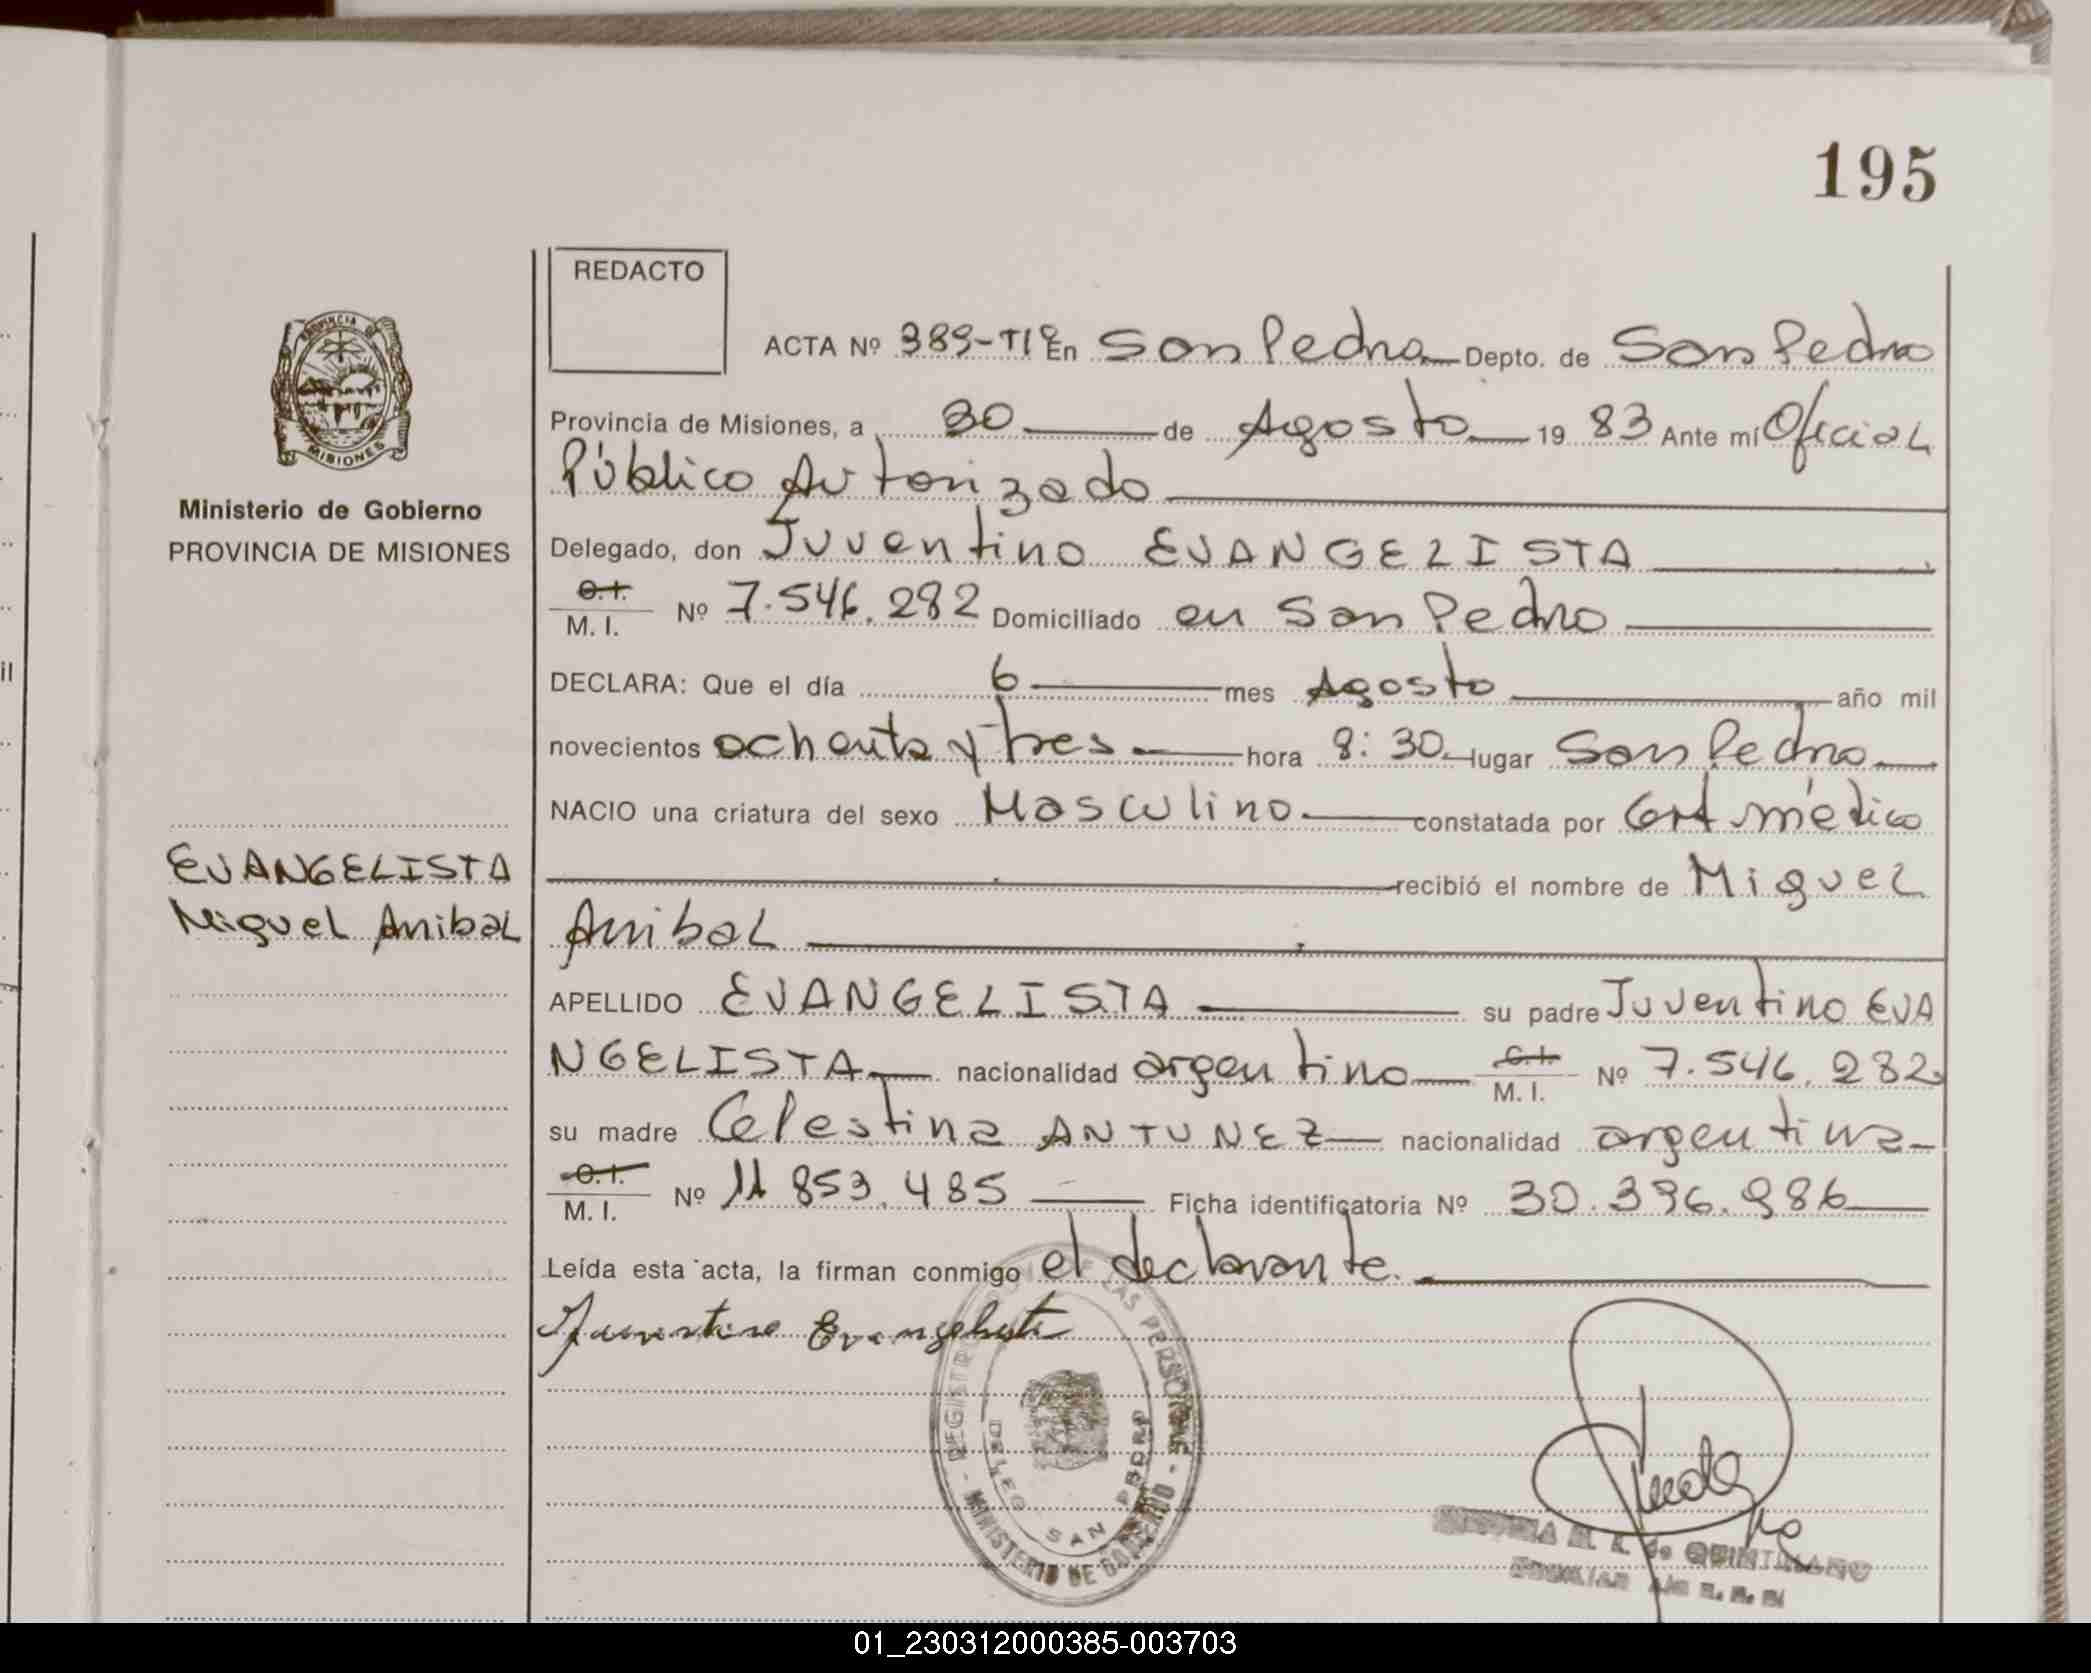 195
REDACTO
ACTA Nº 389-TIº En San Pedro Depto. de San Pedro
Provincia de Misiones, a 30 de Agosto 19 83 Ante mí Oficial
Público Autorizado
Delegado, don Juventino EVANGELISTA
C.I. M. I. Nº 7.546.282 Domiciliado en San Pedro
DECLARA: Que el día 6 mes Agosto año mil
novecientos ochenta y tres hora 8:30 lugar San Pedro
NACIO una criatura del sexo Masculino constatada por Cert médico
recibió el nombre de Miguel
Anibal
APELLIDO EVANGELISTA su padre Juventino EVA
NGELISTA nacionalidad argentino C.I. M. I. Nº 7.546.282
su madre Celestina ANTUNEZ nacionalidad argentina
C.I. M. I. Nº 11 853.485 Ficha identificatoria Nº 30.396.986
Leída esta acta, la firman conmigo el declarante.
Juventino Evangelista
PROVINCIA DE
MISIONES
Ministerio de Gobierno
PROVINCIA DE MISIONES
EVANGELISTA
Miguel Anibal
LAS PERSONAS
DELEG. SAN PEDRO
MINISTERIO DE GOBIERNO
de QUINTILIANO
01_230312000385-003703